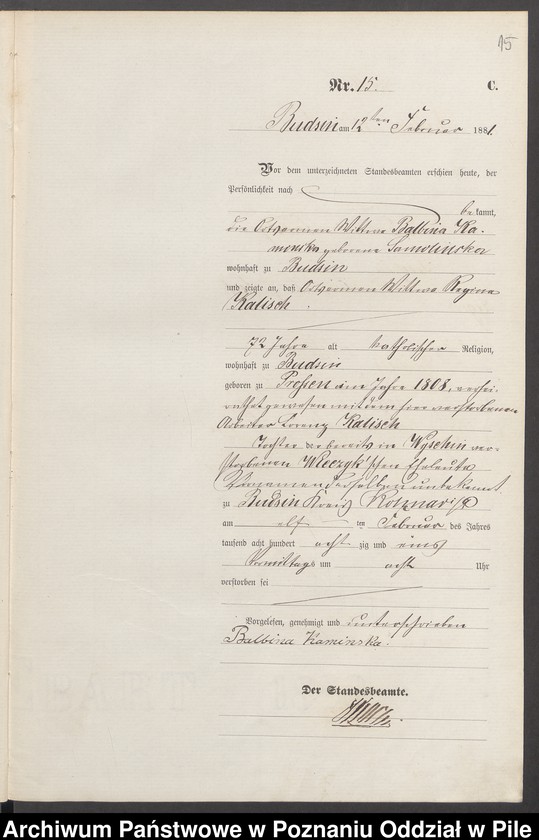 15
Nr. 15. C.
Budsin am 12ten Februar 1881.
Vor dem unterzeichneten Standesbeamten erschien heute, der
Persönlichkeit nach
bekannt,
die Ortsarmen Wittwe Balbina Ka-
minska geborene
wohnhaft zu Budsin
und zeigte an, daß Ortsarmen Wittwe Regina
Kalisch
72 Jahre alt katholischer Religion,
wohnhaft zu Budsin
geboren zu im Jahre 1808, verhei-
rathet gewesen mit dem hier verstorbenen
Arbeiter Lorenz Kalisch
Tochter der bereits in Wyschin ver-
storbenen Wieczyk'schen Eheleute
Vornamen derselben unbekannt
zu Budsin Kreis
am elf ten Februar des Jahres
tausend acht hundert acht zig und eins
Vormittags um acht Uhr
verstorben sei
Vorgelesen, genehmigt und unterschrieben
Balbina Kaminska.
Der Standesbeamte.
Archiwum Państwowe w Poznaniu Oddział w Pile